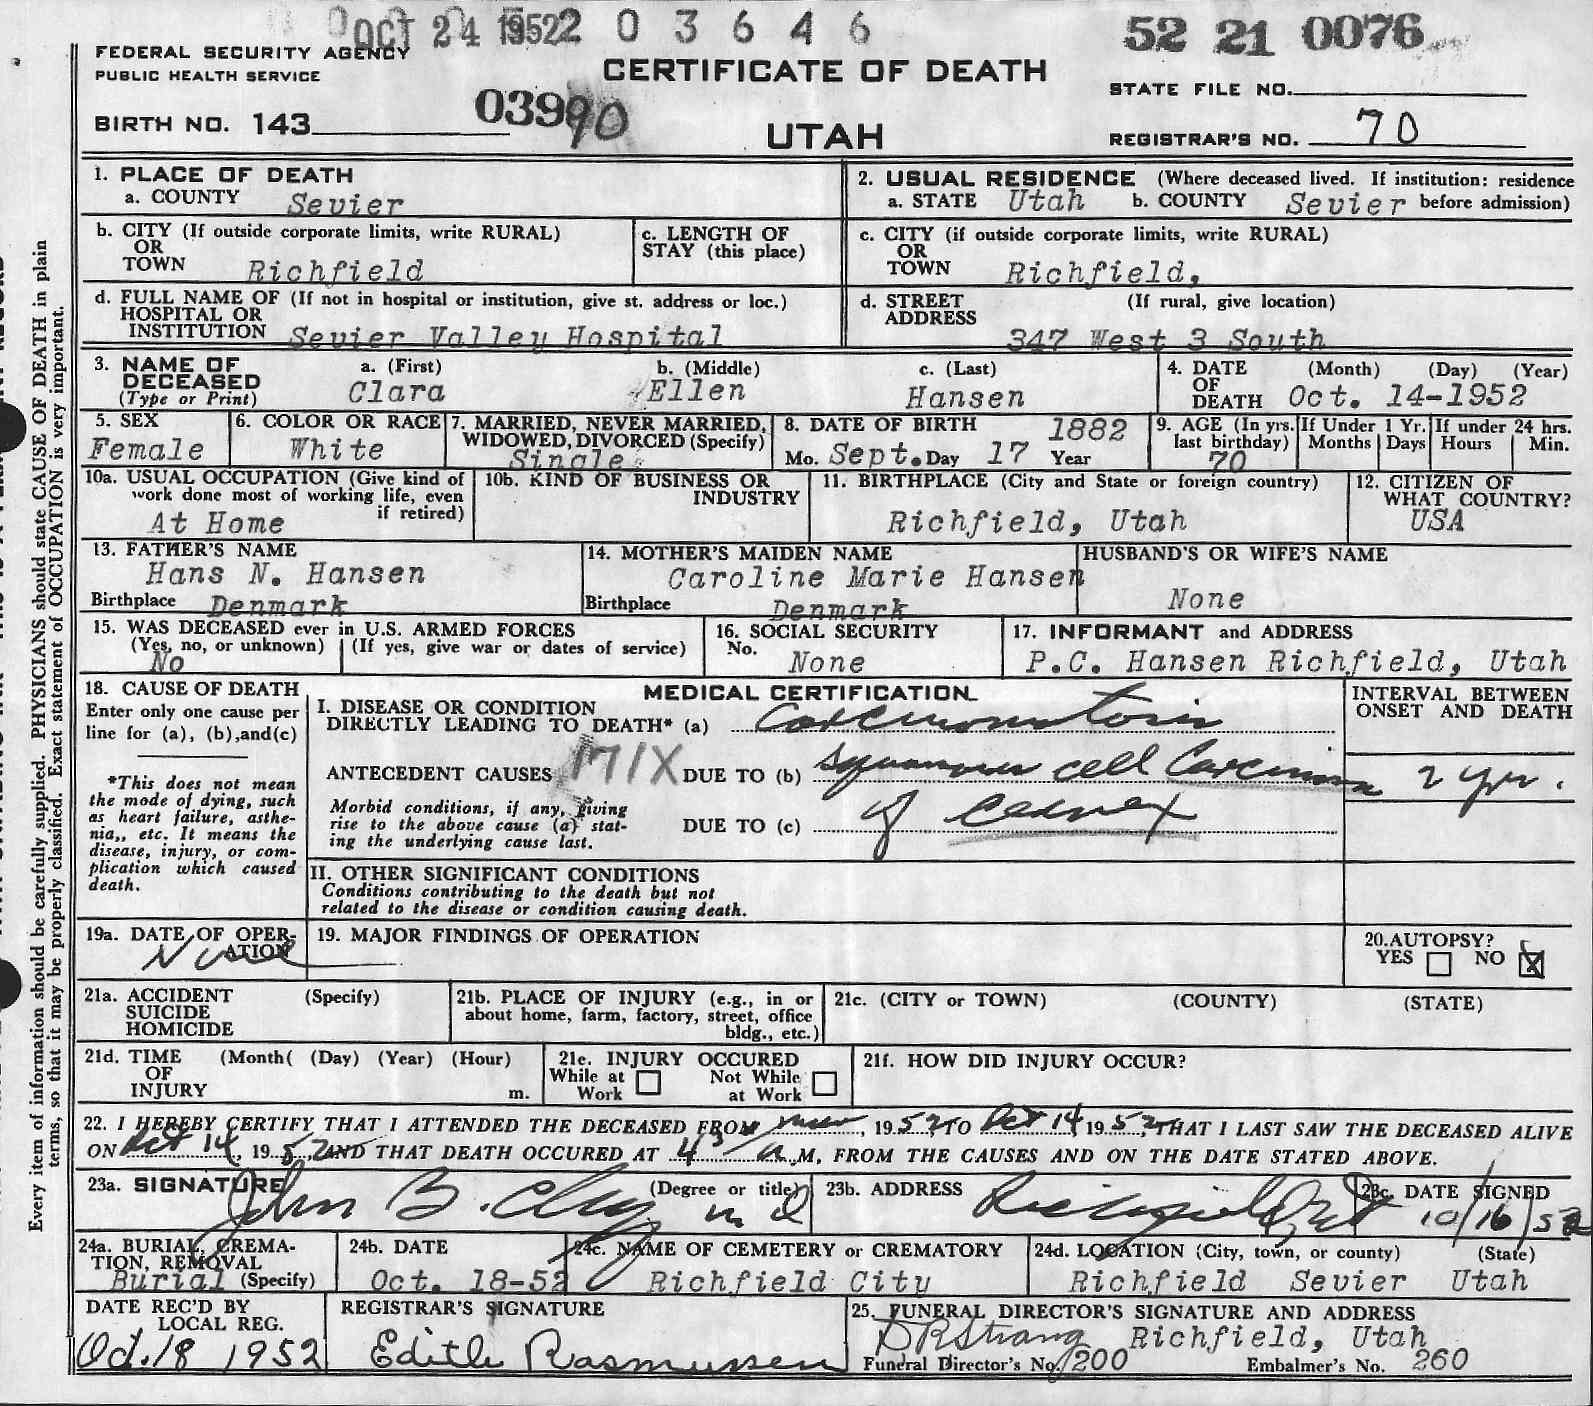 OCT 24 1952 2 0 3 6 4 6
52 21 0076
FEDERAL SECURITY AGENCY
PUBLIC HEALTH SERVICE
CERTIFICATE OF DEATH
STATE FILE NO.
BIRTH NO. 143
03990
UTAH
REGISTRAR'S NO. 70
1. PLACE OF DEATH
a. COUNTY Sevier
2. USUAL RESIDENCE (Where deceased lived. If institution: residence before admission)
a. STATE Utah b. COUNTY Sevier
b. CITY (If outside corporate limits, write RURAL)
OR
TOWN Richfield
c. LENGTH OF
STAY (this place)
c. CITY (if outside corporate limits, write RURAL)
OR
TOWN Richfield,
d. FULL NAME OF (If not in hospital or institution, give st. address or loc.)
HOSPITAL OR
INSTITUTION Sevier Valley Hospital
d. STREET (If rural, give location)
ADDRESS
347 West 3 South
3. NAME OF
DECEASED
(Type or Print)
a. (First)
Clara
b. (Middle)
Ellen
c. (Last)
Hansen
4. DATE (Month) (Day) (Year)
OF
DEATH Oct. 14-1952
5. SEX
Female
6. COLOR OR RACE
White
7. MARRIED, NEVER MARRIED,
WIDOWED, DIVORCED (Specify)
Single
8. DATE OF BIRTH 1882
Mo. Sept. Day 17 Year
9. AGE (In yrs.
last birthday)
70
If Under 1 Yr.
Months Days
If under 24 hrs.
Hours Min.
10a. USUAL OCCUPATION (Give kind of
work done most of working life, even
if retired)
At Home
10b. KIND OF BUSINESS OR
INDUSTRY
11. BIRTHPLACE (City and State or foreign country)
Richfield, Utah
12. CITIZEN OF
WHAT COUNTRY?
USA
13. FATHER'S NAME
Hans N. Hansen
Birthplace Denmark
14. MOTHER'S MAIDEN NAME
Caroline Marie Hansen
Birthplace Denmark
HUSBAND'S OR WIFE'S NAME
None
15. WAS DECEASED ever in U.S. ARMED FORCES
(Yes, no, or unknown) (If yes, give war or dates of service)
No
16. SOCIAL SECURITY
No.
None
17. INFORMANT and ADDRESS
P.C. Hansen Richfield, Utah
18. CAUSE OF DEATH
Enter only one cause per
line for (a), (b),and(c)
*This does not mean
the mode of dying, such
as heart failure, asthe-
nia,, etc. It means the
disease, injury, or com-
plication which caused
death.
MEDICAL CERTIFICATION
I. DISEASE OR CONDITION
DIRECTLY LEADING TO DEATH* (a) Carcinomatosis
ANTECEDENT CAUSES 171X DUE TO (b) squamous cell Carcinoma
Morbid conditions, if any, giving
rise to the above cause (a) stat-
ing the underlying cause last.
DUE TO (c) of Cervix
INTERVAL BETWEEN
ONSET AND DEATH
2 yrs.
II. OTHER SIGNIFICANT CONDITIONS
Conditions contributing to the death but not
related to the disease or condition causing death.
19a. DATE OF OPER-
ATION
None
19. MAJOR FINDINGS OF OPERATION
20.AUTOPSY?
YES NO X
21a. ACCIDENT (Specify)
SUICIDE
HOMICIDE
21b. PLACE OF INJURY (e.g., in or
about home, farm, factory, street, office
bldg., etc.)
21c. (CITY or TOWN) (COUNTY) (STATE)
21d. TIME (Month( (Day) (Year) (Hour)
OF
INJURY m.
21e. INJURY OCCURED
While at Work Not While at Work
21f. HOW DID INJURY OCCUR?
22. I HEREBY CERTIFY THAT I ATTENDED THE DECEASED FROM , 19 52 TO Oct 14 19 52, THAT I LAST SAW THE DECEASED ALIVE
ON Oct 14, 19 52 AND THAT DEATH OCCURED AT 4 a M, FROM THE CAUSES AND ON THE DATE STATED ABOVE.
23a. SIGNATURE (Degree or title)
John B. md
23b. ADDRESS
Richfield, Ut
23c. DATE SIGNED
10/16/52
24a. BURIAL, CREMA-
TION, REMOVAL
Burial (Specify)
24b. DATE
Oct. 18-52
24c. NAME OF CEMETERY or CREMATORY
Richfield City
24d. LOCATION (City, town, or county) (State)
Richfield Sevier Utah
DATE REC'D BY
LOCAL REG.
Oct. 18 1952
REGISTRAR'S SIGNATURE
Edith Rasmussen
25. FUNERAL DIRECTOR'S SIGNATURE AND ADDRESS
DRStrang Richfield, Utah
Funeral Director's No. 200 Embalmer's No. 260
Every item of information should be carefully supplied. PHYSICIANS should state CAUSE OF DEATH in plain
terms, so that it may be properly classified. Exact statement of OCCUPATION is very important.